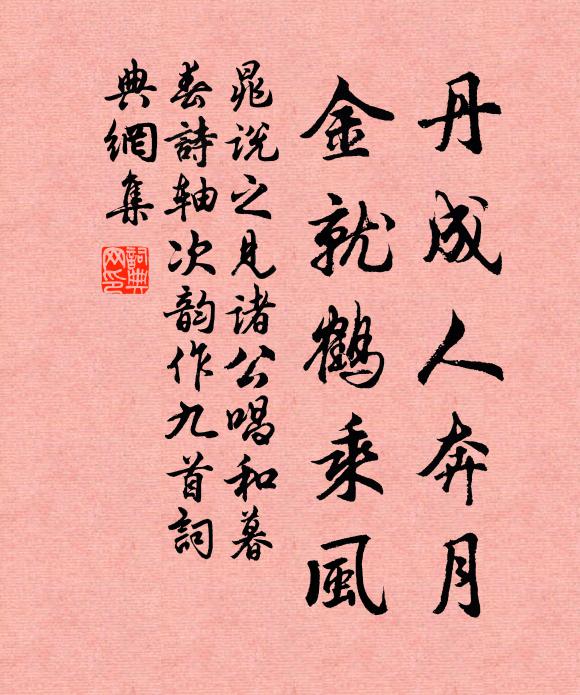 丹成人奔月
金就鶴乘風
晁說之見诸公唱和暮
春詩軸次韵作九首詞
典網集
詞典网印